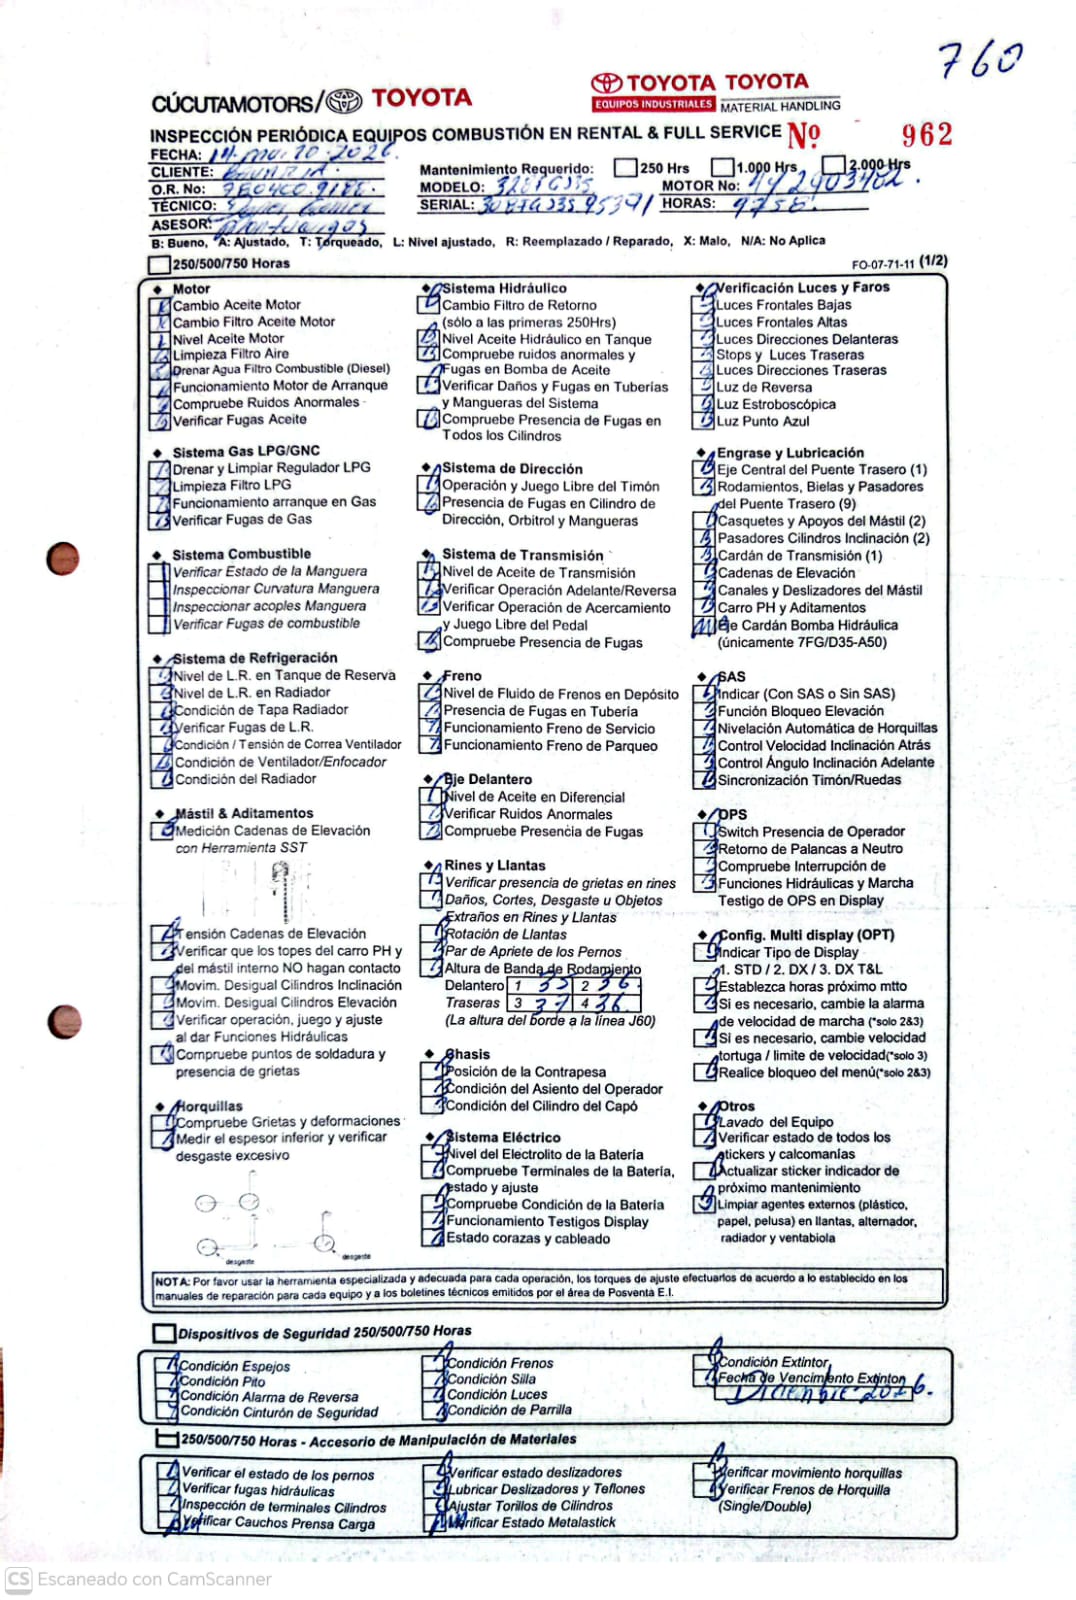 760
CÚCUTAMOTORS/ TOYOTA
TOYOTA TOYOTA
EQUIPOS INDUSTRIALES MATERIAL HANDLING
INSPECCIÓN PERIÓDICA EQUIPOS COMBUSTIÓN EN RENTAL & FULL SERVICE Nº 962
FECHA:
CLIENTE:
O.R. No:
TÉCNICO:
ASESOR:
Mantenimiento Requerido: 250 Hrs 1.000 Hrs 2.000 Hrs
MODELO: MOTOR No:
SERIAL: HORAS:
B: Bueno, A: Ajustado, T: Torqueado, L: Nivel ajustado, R: Reemplazado / Reparado, X: Malo, N/A: No Aplica
250/500/750 Horas
FO-07-71-11 (1/2)
Motor
Cambio Aceite Motor
Cambio Filtro Aceite Motor
Nivel Aceite Motor
Limpieza Filtro Aire
Drenar Agua Filtro Combustible (Diesel)
Funcionamiento Motor de Arranque
Compruebe Ruidos Anormales
Verificar Fugas Aceite
Sistema Gas LPG/GNC
Drenar y Limpiar Regulador LPG
Limpieza Filtro LPG
Funcionamiento arranque en Gas
Verificar Fugas de Gas
Sistema Combustible
Verificar Estado de la Manguera
Inspeccionar Curvatura Manguera
Inspeccionar acoples Manguera
Verificar Fugas de combustible
Sistema de Refrigeración
Nivel de L.R. en Tanque de Reserva
Nivel de L.R. en Radiador
Condición de Tapa Radiador
Verificar Fugas de L.R.
Condición / Tensión de Correa Ventilador
Condición de Ventilador/Enfocador
Condición del Radiador
Mástil & Aditamentos
Medición Cadenas de Elevación
con Herramienta SST
Tensión Cadenas de Elevación
Verificar que los topes del carro PH y
del mástil interno NO hagan contacto
Movim. Desigual Cilindros Inclinación
Movim. Desigual Cilindros Elevación
Verificar operación, juego y ajuste
al dar Funciones Hidráulicas
Compruebe puntos de soldadura y
presencia de grietas
Horquillas
Compruebe Grietas y deformaciones
Medir el espesor inferior y verificar
desgaste excesivo
desgaste
desgaste
Sistema Hidráulico
Cambio Filtro de Retorno
(sólo a las primeras 250Hrs)
Nivel Aceite Hidráulico en Tanque
Compruebe ruidos anormales y
Fugas en Bomba de Aceite
Verificar Daños y Fugas en Tuberías
y Mangueras del Sistema
Compruebe Presencia de Fugas en
Todos los Cilindros
Sistema de Dirección
Operación y Juego Libre del Timón
Presencia de Fugas en Cilindro de
Dirección, Orbitrol y Mangueras
Sistema de Transmisión
Nivel de Aceite de Transmisión
Verificar Operación Adelante/Reversa
Verificar Operación de Acercamiento
y Juego Libre del Pedal
Compruebe Presencia de Fugas
Freno
Nivel de Fluido de Frenos en Depósito
Presencia de Fugas en Tubería
Funcionamiento Freno de Servicio
Funcionamiento Freno de Parqueo
Eje Delantero
Nivel de Aceite en Diferencial
Verificar Ruidos Anormales
Compruebe Presencia de Fugas
Rines y Llantas
Verificar presencia de grietas en rines
Daños, Cortes, Desgaste u Objetos
Extraños en Rines y Llantas
Rotación de Llantas
Par de Apriete de los Pernos
Altura de Banda de Rodamiento
Delantero 1 35 2 36
Traseras 3 37 4 36
(La altura del borde a la línea J60)
Chasis
Posición de la Contrapesa
Condición del Asiento del Operador
Condición del Cilindro del Capó
Sistema Eléctrico
Nivel del Electrolito de la Batería
Compruebe Terminales de la Batería,
estado y ajuste
Compruebe Condición de la Batería
Funcionamiento Testigos Display
Estado corazas y cableado
Verificación Luces y Faros
Luces Frontales Bajas
Luces Frontales Altas
Luces Direcciones Delanteras
Stops y Luces Traseras
Luces Direcciones Traseras
Luz de Reversa
Luz Estroboscópica
Luz Punto Azul
Engrase y Lubricación
Eje Central del Puente Trasero (1)
Rodamientos, Bielas y Pasadores
del Puente Trasero (9)
Casquetes y Apoyos del Mástil (2)
Pasadores Cilindros Inclinación (2)
Cardán de Transmisión (1)
Cadenas de Elevación
Canales y Deslizadores del Mástil
Carro PH y Aditamentos
Eje Cardán Bomba Hidráulica
(únicamente 7FG/D35-A50)
SAS
Indicar (Con SAS o Sin SAS)
Función Bloqueo Elevación
Nivelación Automática de Horquillas
Control Velocidad Inclinación Atrás
Control Ángulo Inclinación Adelante
Sincronización Timón/Ruedas
OPS
Switch Presencia de Operador
Retorno de Palancas a Neutro
Compruebe Interrupción de
Funciones Hidráulicas y Marcha
Testigo de OPS en Display
Config. Multi display (OPT)
Indicar Tipo de Display
1. STD / 2. DX / 3. DX T&L
Establezca horas próximo mtto
Si es necesario, cambie la alarma
de velocidad de marcha (*solo 2&3)
Si es necesario, cambie velocidad
tortuga / limite de velocidad(*solo 3)
Realice bloqueo del menú(*solo 2&3)
Otros
Lavado del Equipo
Verificar estado de todos los
stickers y calcomanías
Actualizar sticker indicador de
próximo mantenimiento
Limpiar agentes externos (plástico,
papel, pelusa) en llantas, alternador,
radiador y ventabiola
NOTA: Por favor usar la herramienta especializada y adecuada para cada operación, los torques de ajuste efectuarlos de acuerdo a lo establecido en los
manuales de reparación para cada equipo y a los boletines técnicos emitidos por el área de Posventa E.I.
Dispositivos de Seguridad 250/500/750 Horas
Condición Espejos
Condición Pito
Condición Alarma de Reversa
Condición Cinturón de Seguridad
Condición Frenos
Condición Silla
Condición Luces
Condición de Parrilla
Condición Extintor
Fecha de Vencimiento Extintor
Diciembre-2026.
250/500/750 Horas - Accesorio de Manipulación de Materiales
Verificar el estado de los pernos
Verificar fugas hidráulicas
Inspección de terminales Cilindros
Verificar Cauchos Prensa Carga
Verificar estado deslizadores
Lubricar Deslizadores y Teflones
Ajustar Torillos de Cilindros
Verificar Estado Metalastick
Verificar movimiento horquillas
Verificar Frenos de Horquilla
(Single/Double)
CS Escaneado con CamScanner